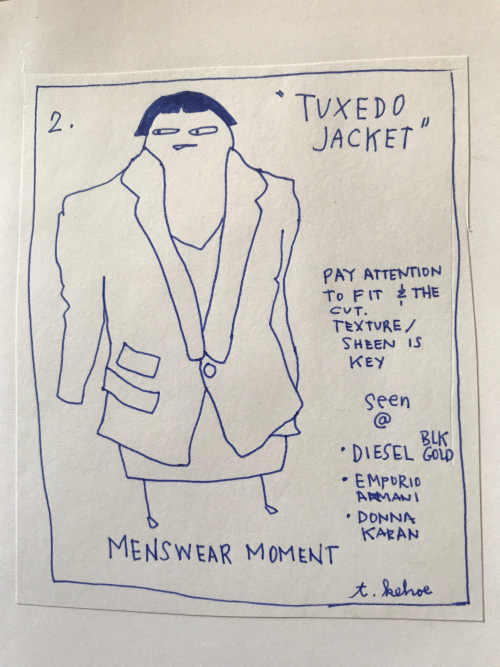 2.
"TUXEDO
JACKET"
PAY ATTENTION
TO FIT & THE
CUT.
TEXTURE/
SHEEN IS
KEY
Seen
@
• DIESEL BLK GOLD
• EMPORIO
ARMANI
• DONNA
KARAN
MENSWEAR MOMENT
t. kehoe